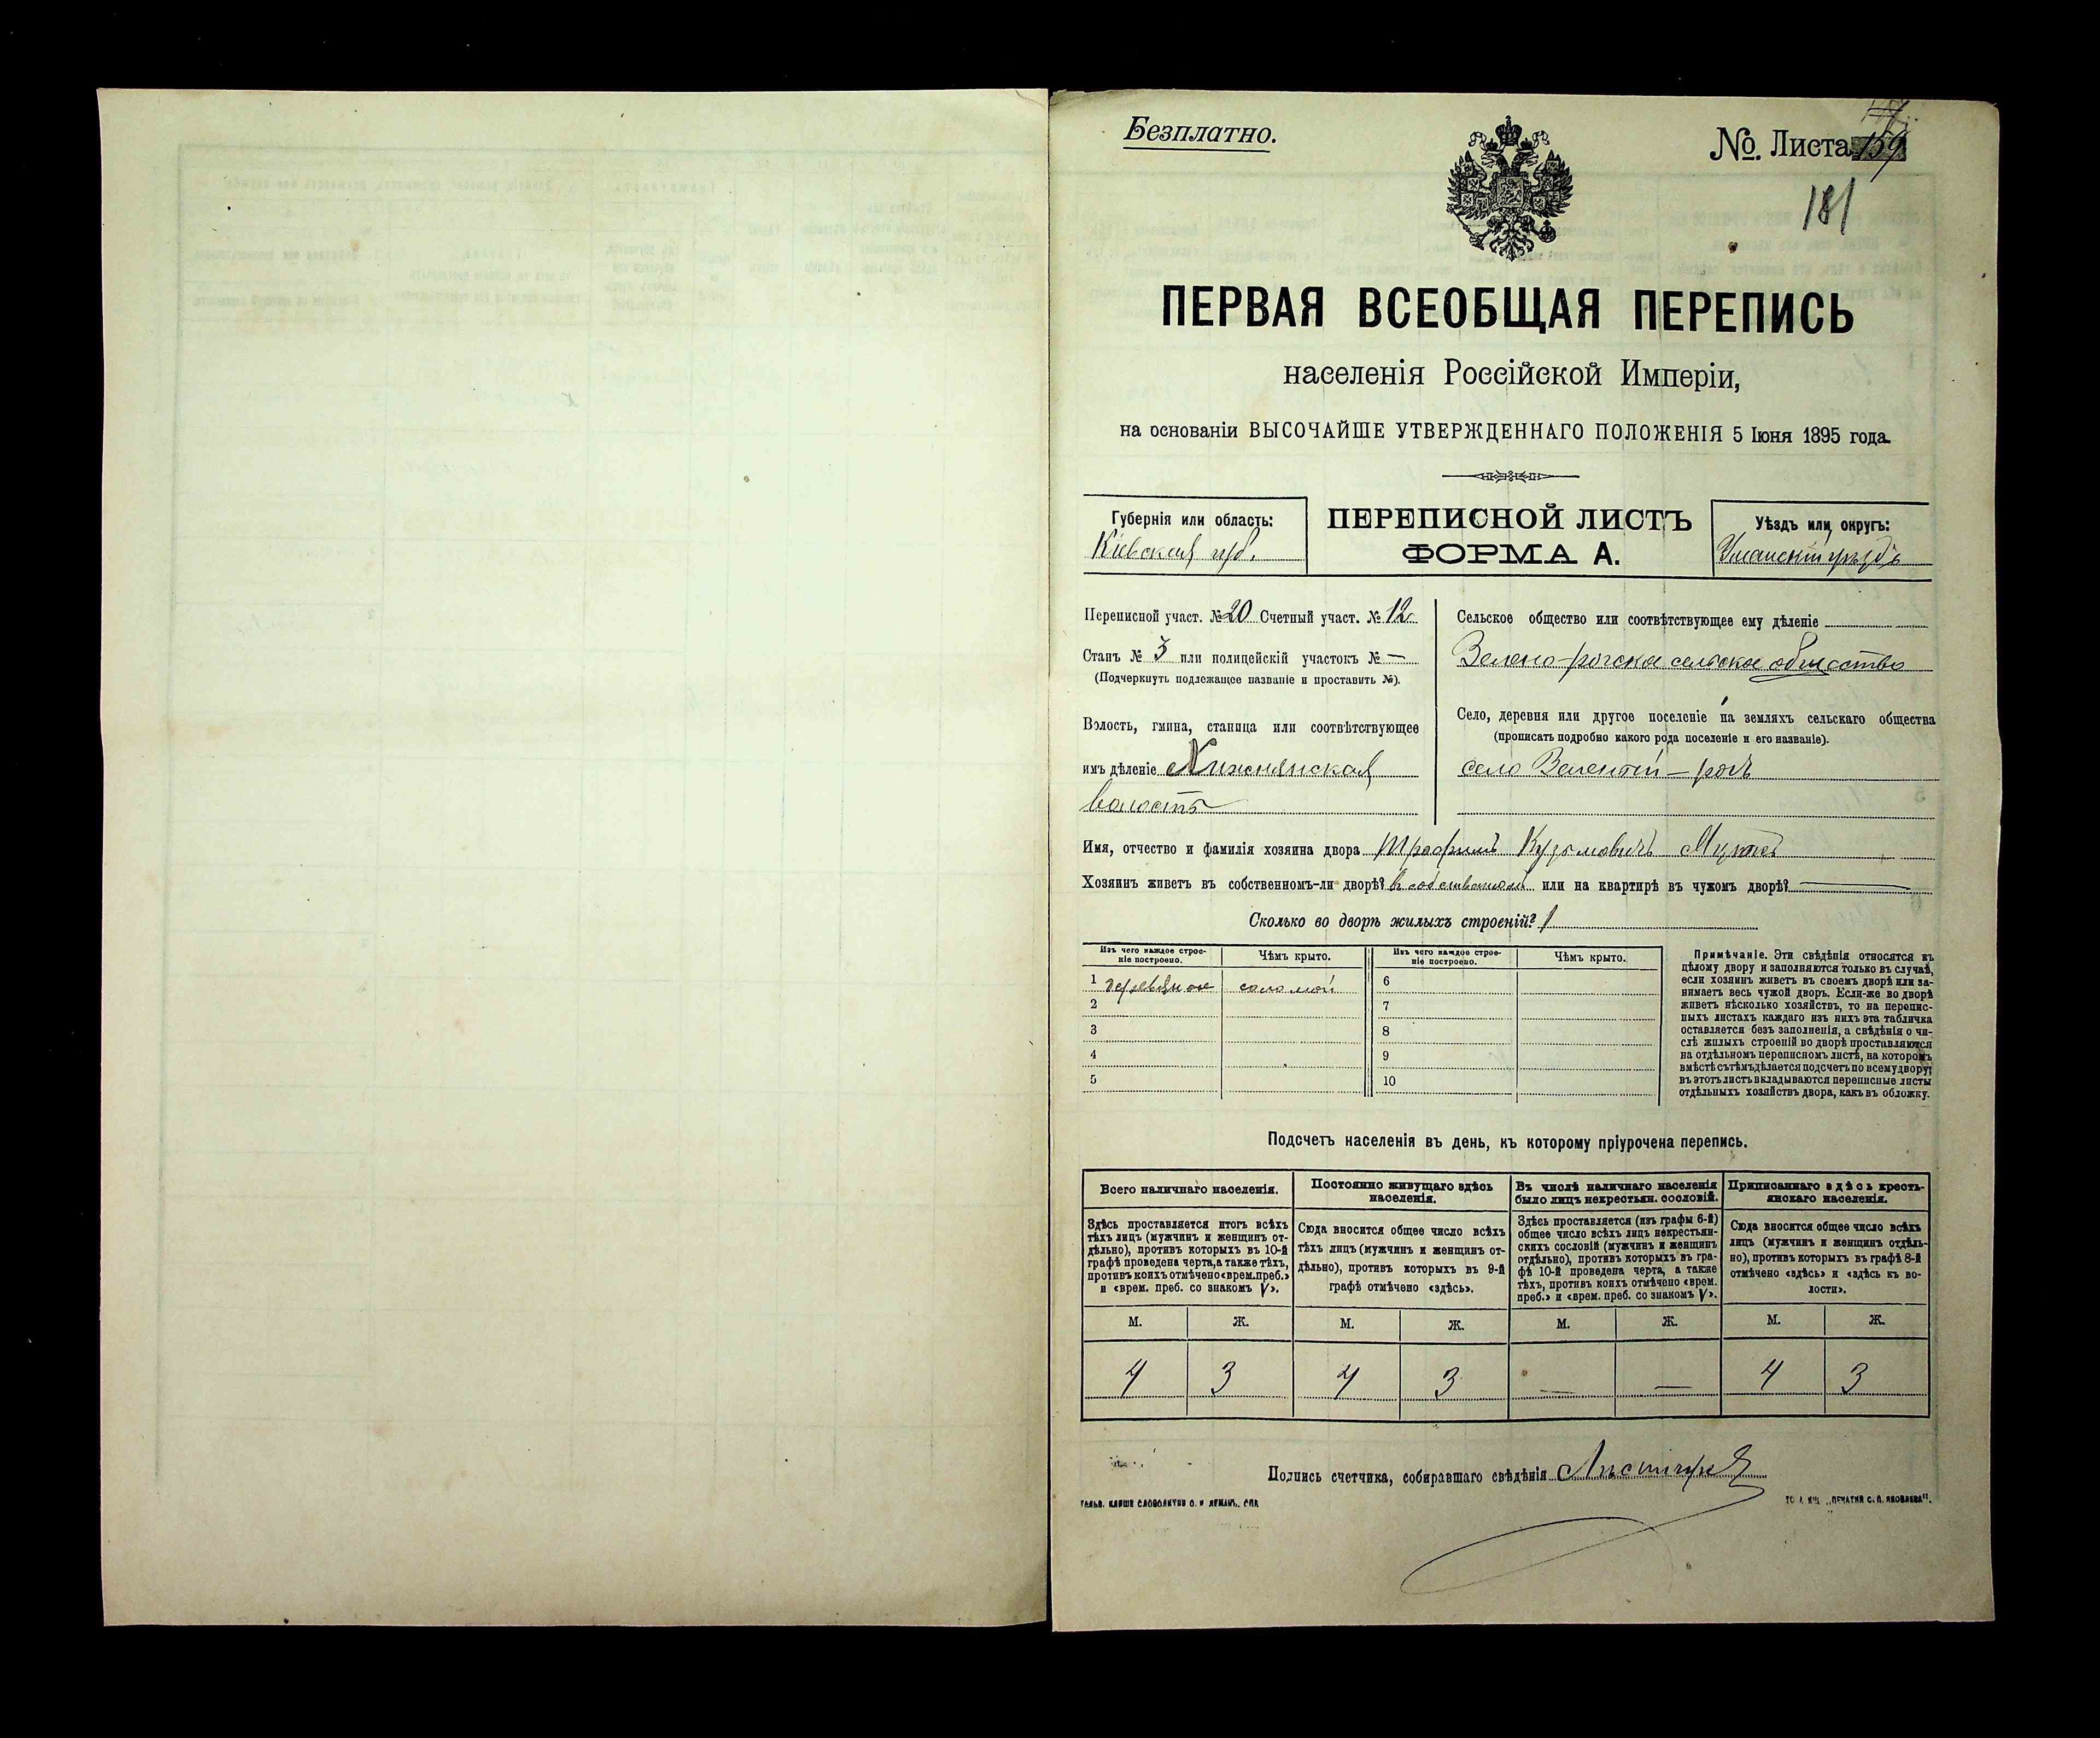 Безплатно.
№ Листа 159
181
ПЕРВАЯ ВСЕОБЩАЯ ПЕРЕПИСЬ
населенія Россійской Имперіи,
на основаніи ВЫСОЧАЙШЕ УТВЕРЖДЕННАГО ПОЛОЖЕНІЯ 5 Іюня 1895 года.
Губернія или область:
Кіевская губ.
ПЕРЕПИСНОЙ ЛИСТЪ
ФОРМА А.
Уѣздъ или округъ:
Уманскій уѣздъ
Переписной участ. № 20 Счетный участ. № 12
Станъ № 3 или полицейскій участокъ № —
(Подчеркнуть подлежащее названіе и проставить №).
Волость, гмина, станица или соотвѣтствующее
имъ дѣленіе Хижнянская
волость
Сельское общество или соотвѣтствующее ему дѣленіе
Зелено-рогское сельское общество
Село, деревня или другое поселеніе на земляхъ сельскаго общества
(прописать подробно какого рода поселеніе и его названіе).
село Зеленый-рогъ
Имя, отчество и фамилія хозяина двора Трофимъ Кузьмовичъ
Хозяинъ живетъ въ собственномъ-ли дворѣ? въ собственномъ или на квартирѣ въ чужомъ дворѣ? —
Сколько во дворѣ жилыхъ строеній? 1
Изъ чего каждое строе-
ніе построено.
Чѣмъ крыто.
Изъ чего каждое строе-
ніе построено.
Чѣмъ крыто.
1 деревянное соломой 6
2 7
3 8
4 9
5 10
Примѣчаніе. Эти свѣдѣнія относятся къ
цѣлому двору и заполняются только въ случаѣ,
если хозяинъ живетъ въ своемъ дворѣ или за-
нимаетъ весь чужой дворъ. Если-же во дворѣ
живетъ нѣсколько хозяйствъ, то на перепис-
ныхъ листахъ каждаго изъ нихъ эта табличка
оставляется безъ заполненія, а свѣдѣнія о чи-
слѣ жилыхъ строеній во дворѣ проставляются
на отдѣльномъ переписномъ листѣ, на которомъ
вмѣстѣ съ тѣмъ дѣлается подсчетъ по всему двору;
въ этотъ листъ вкладываются переписные листы
отдѣльныхъ хозяйствъ двора, какъ въ обложку.
Подсчетъ населенія въ день, къ которому пріурочена перепись.
Всего наличнаго населенія.
Здѣсь проставляется итогъ всѣхъ
тѣхъ лицъ (мужчинъ и женщинъ от-
дѣльно), противъ которыхъ въ 10-й
графѣ проведена черта, а также тѣхъ,
противъ коихъ отмѣчено «врем. преб.»
и «врем. преб. со знакомъ V».
Постоянно живущаго здѣсь
населенія.
Сюда вносится общее число всѣхъ
тѣхъ лицъ (мужчинъ и женщинъ от-
дѣльно), противъ которыхъ въ 9-й
графѣ отмѣчено «здѣсь».
Въ числѣ наличнаго населенія
было лицъ некрестьян. сословій.
Здѣсь проставляется (изъ графы 6-й)
общее число всѣхъ лицъ некрестьян-
скихъ сословій (мужчинъ и женщинъ
отдѣльно), противъ которыхъ въ гра-
фѣ 10-й проведена черта, а также
тѣхъ, противъ коихъ отмѣчено «врем.
преб.» и «врем. преб. со знакомъ V».
Приписаннаго здѣсь кресть-
янскаго населенія.
Сюда вносится общее число всѣхъ
лицъ (мужчинъ и женщинъ отдѣль-
но), противъ которыхъ въ графѣ 8-й
отмѣчено «здѣсь» и «здѣсь къ во-
лости».
М. Ж. М. Ж. М. Ж. М. Ж.
4 3 4 3 — — 4 3
Подпись счетчика, собиравшаго свѣдѣнія